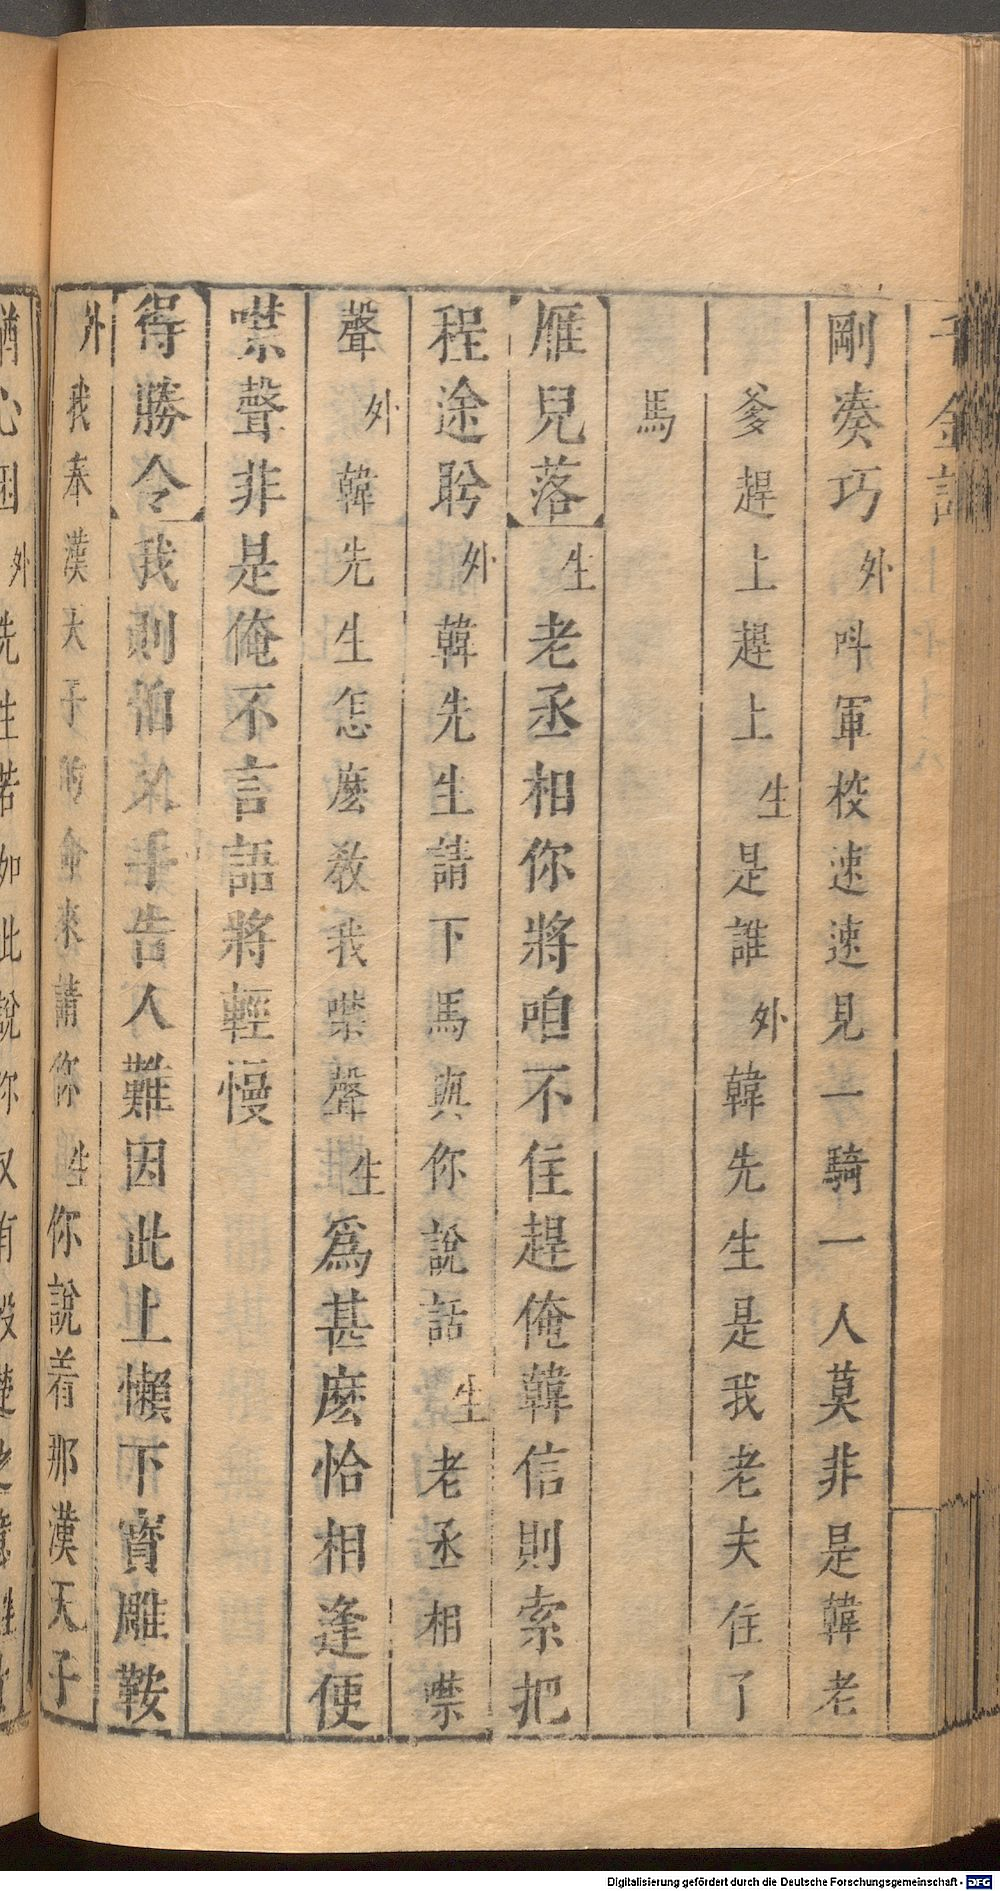 千金記
剛凑巧外呌軍校速速見一騎一人莫非是韓老
爹趕上趕上生是誰外韓先生是我老夫住了
馬
雁兒落生老丞相你將咱不住趕俺韓信則索把
程途盻外韓先生請下馬與你說話生老丞相噤
聲外韓先生怎麽教我噤聲生爲甚麽恰相逢便
噤聲非是俺不言語將輕慢
得勝令我則怕 手告人難因此上懶下寳雕鞍
外我奉漢天子的命來請你生你說着那漢天子
心困外先生若如此說你又有 楚之意
Digitalisierung gefördert durch die Deutsche Forschungsgemeinschaft - DFG